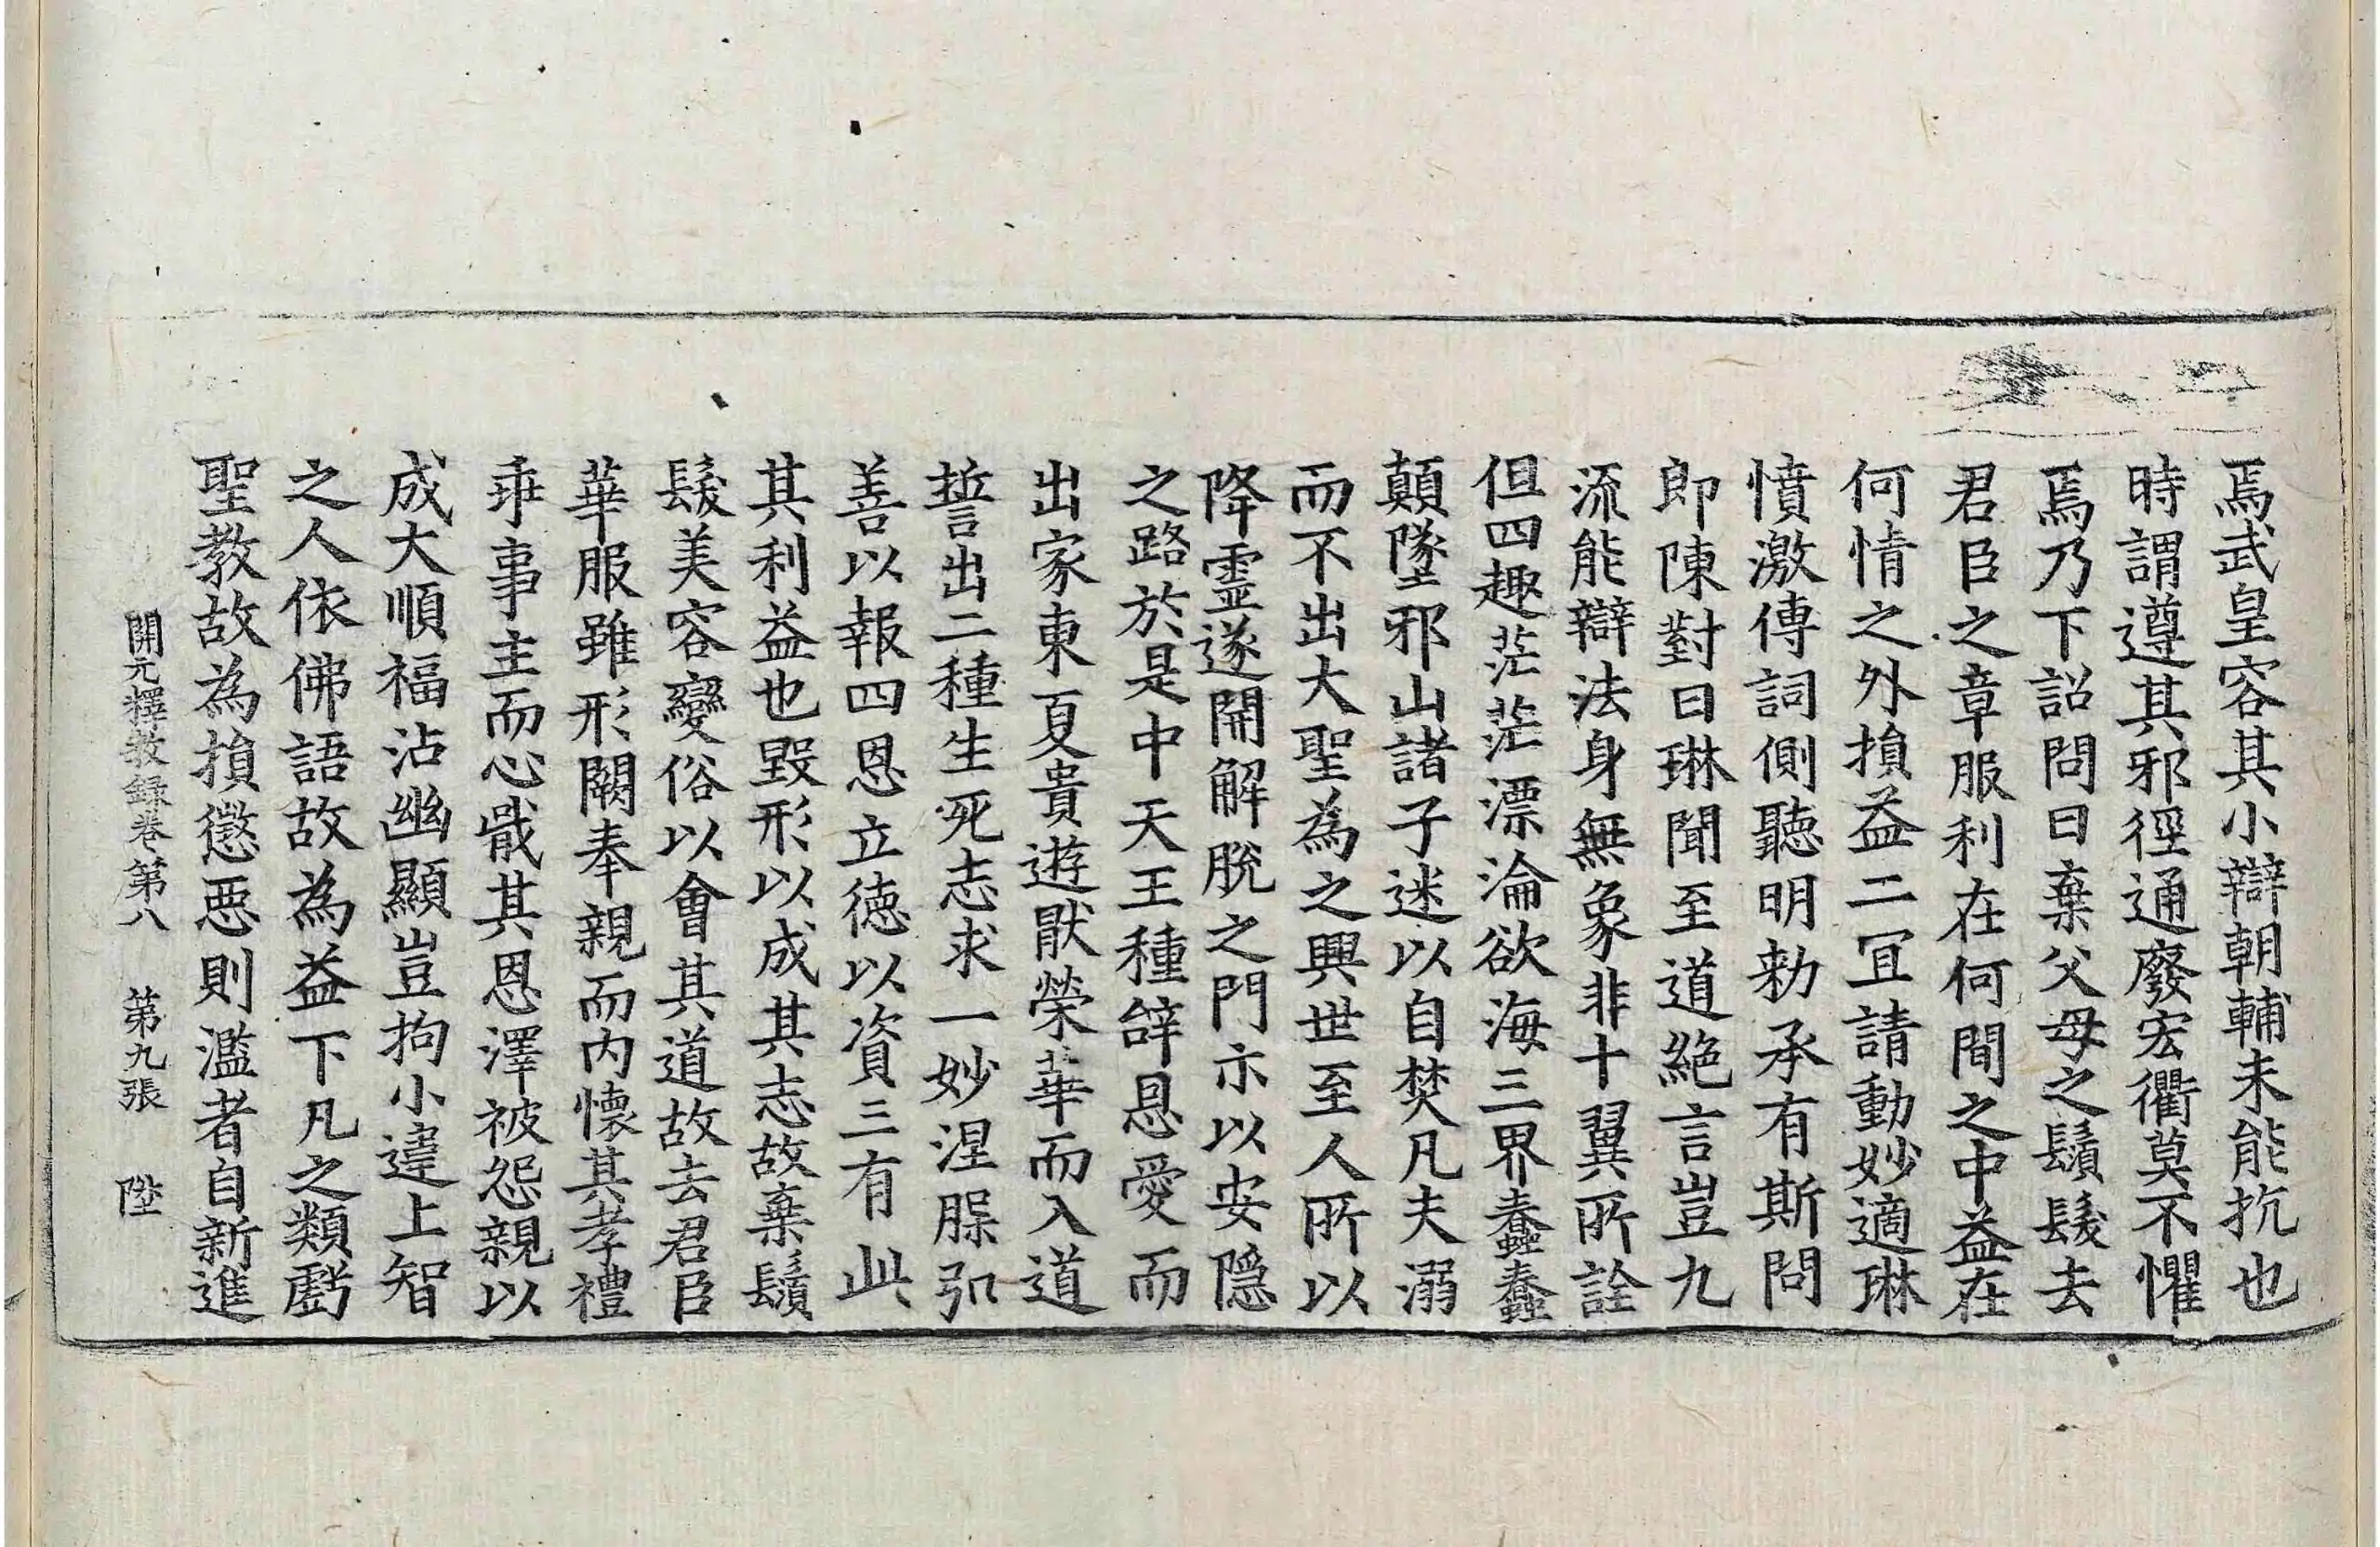 焉武皇容其小辯朝輔未能抗也
時謂遵其邪徑通廢宏衢莫不懼
焉乃下詔問曰棄父母之鬚髮去
君臣之章服利在何間之中益在
何情之外損益二冝請動妙適琳
憤激傳詞側聽明勑承有斯問
即陳對曰琳聞至道絕言豈九
流能辯法身無象非十翼所詮
但四趣茫茫漂淪欲海三界蠢蠢
顛墜邪山諸子迷以自焚凡夫溺
而不出大聖為之興世至人所以
降霊遂開解脫之門示以安隱
之路於是中天王種辝恩愛而
出家東夏貴遊猒榮華而入道
誓出二種生死志求一妙涅脲弘
善以報四恩立徳以資三有此
其利益也毀形以成其志故棄鬚
髮美容變俗以會其道故去君臣
華服雖形闕奉親而內懷其孝禮
乖事主而心戢其恩澤被怨親以
成大順福沾幽顯豈拘小違上智
之人依佛語故為益下凡之類虧
聖教故為損懲惡則濫者自新進
開元釋教録卷第八 第九張 陞